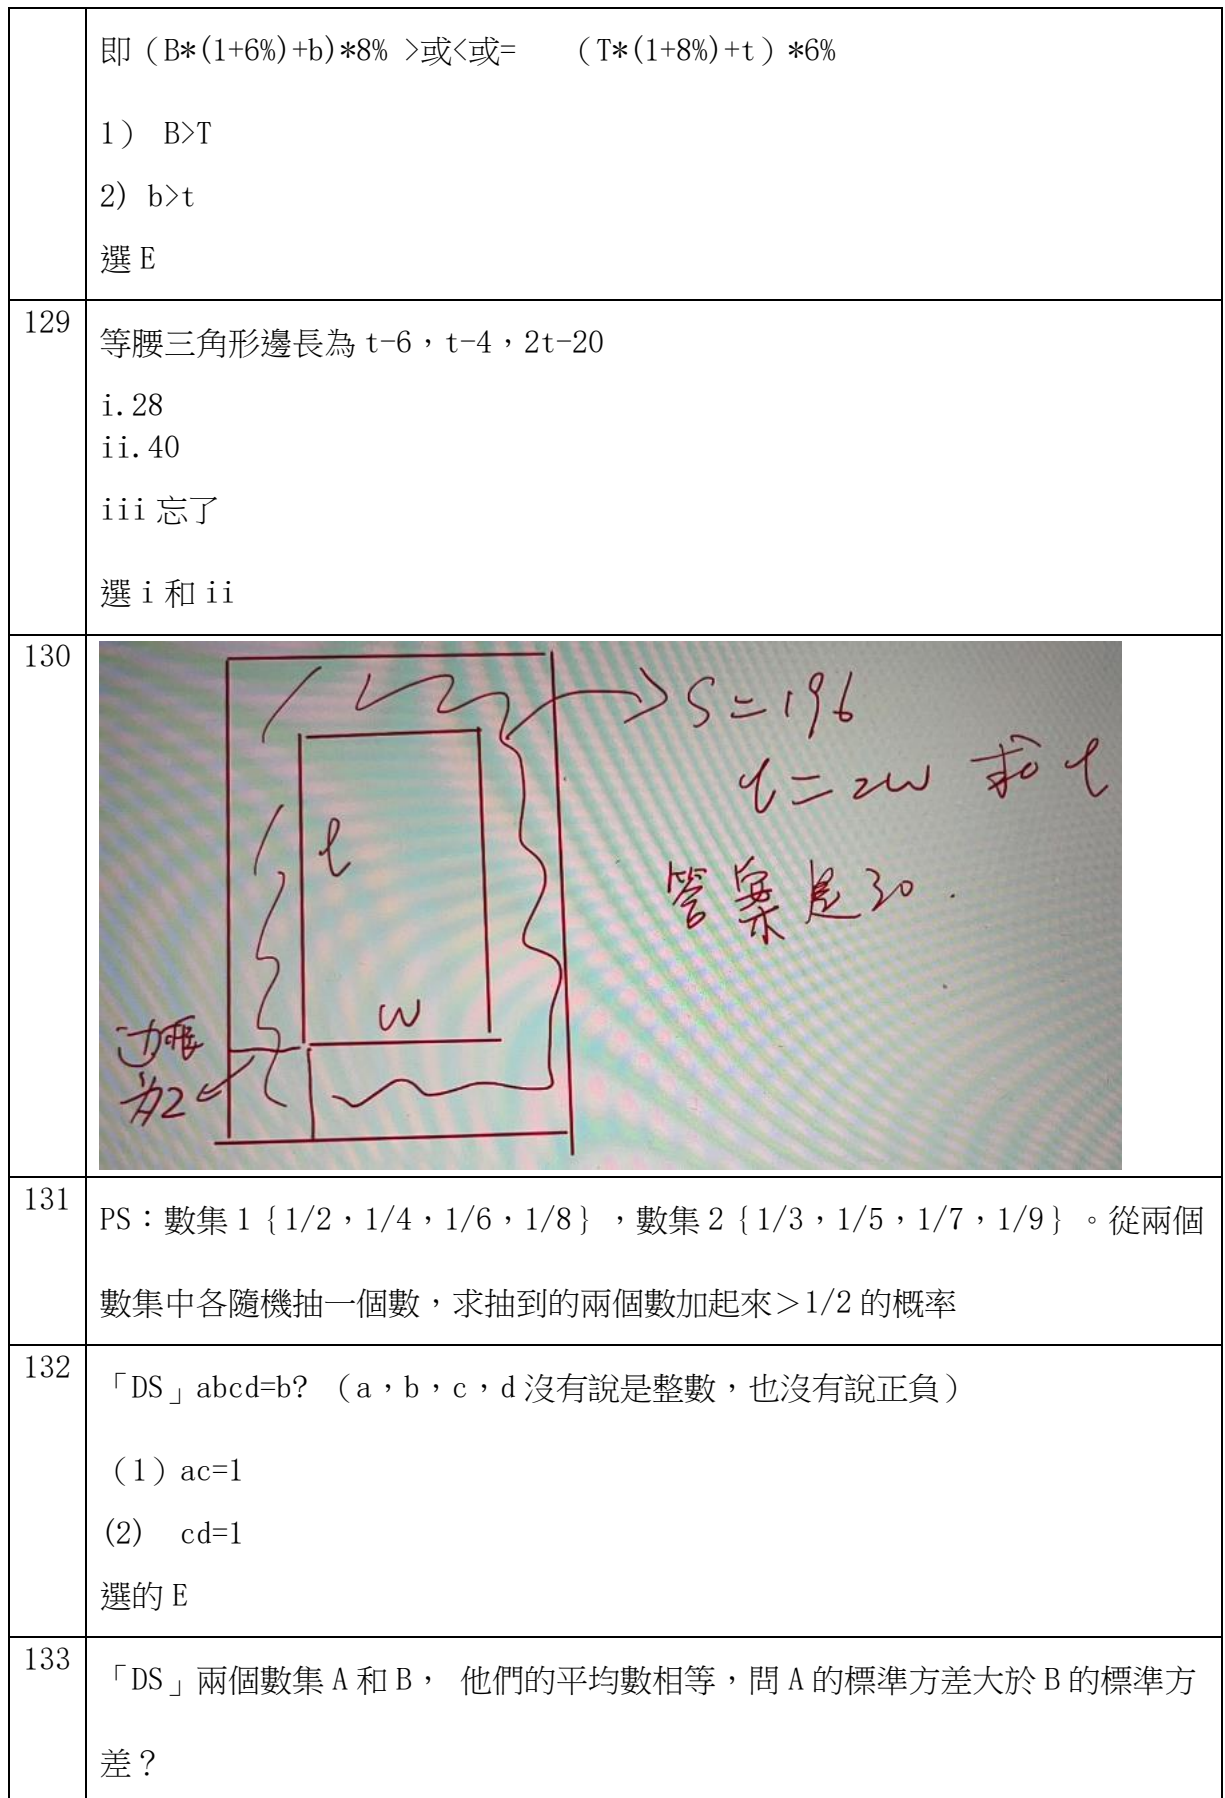 即（B*(1+6%)+b)*8% >或<或= （T*(1+8%)+t）*6%
1） B>T
2) b>t
選 E
129
等腰三角形邊長為 t-6，t-4，2t-20
i.28
ii.40
iii 忘了
選 i 和 ii
130
S=196
l=2w 求 l
l
答案是30.
w
边框
为2
131
PS：數集 1｛1/2，1/4，1/6，1/8｝，數集 2｛1/3，1/5，1/7，1/9｝。從兩個
數集中各隨機抽一個數，求抽到的兩個數加起來＞1/2 的概率
132
「DS」abcd=b? （a，b，c，d 沒有說是整數，也沒有說正負）
（1）ac=1
(2) cd=1
選的 E
133
「DS」兩個數集 A 和 B， 他們的平均數相等，問 A 的標準方差大於 B 的標準方
差？